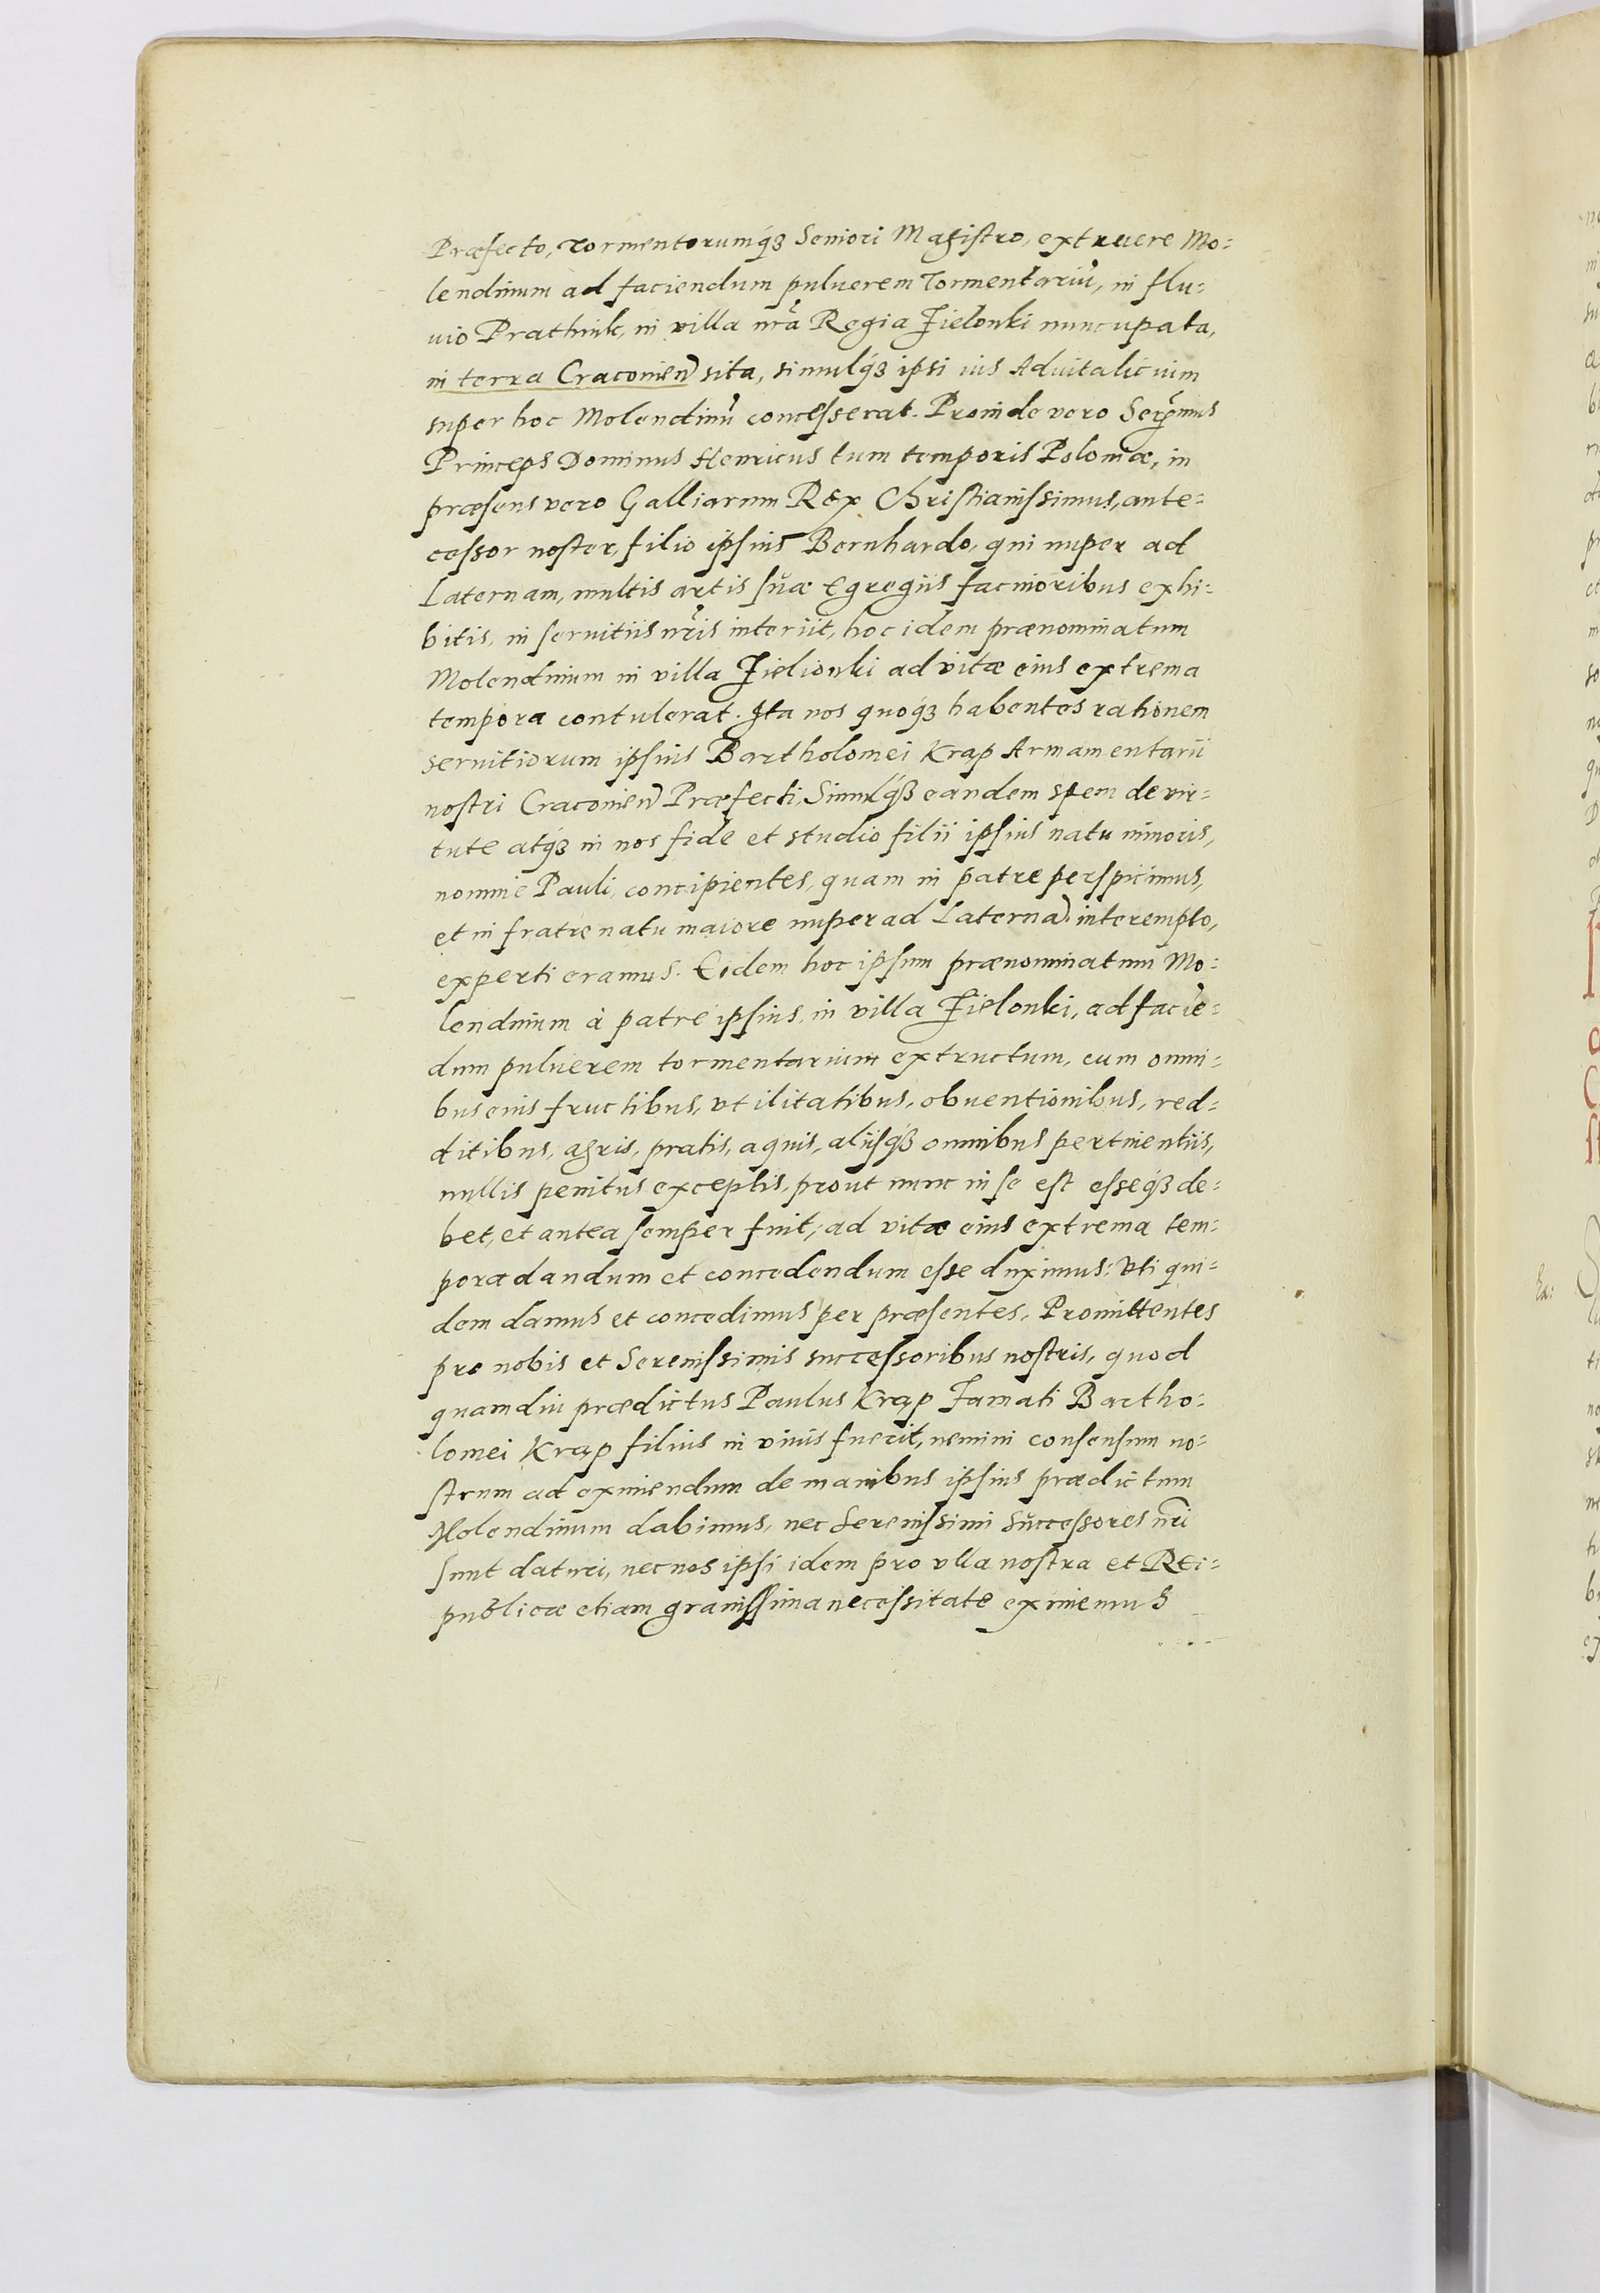 Præfecto, Tormentorumq́ꝫ Seniori Magistro, extruere Mo=
lendinum ad faciendum puluerem Tormentariũ, in flu=
uio Prathnik, in villa nr̃a Regia Zielonki nuncupata,
in terra Cracovieñ sita, simulq́ꝫ ipsi ius Aduitalicium
super hoc Molendinũ concesserat. Proinde vero Serẽmus
Princeps Dominus Henricus tum temporis Poloniæ, in
præsens vero Galliarum Rex Christianissimus, ante=
cessor noster, filio ipsius Bernhardo, qui nuper ad
Laternam, multis artis suæ Egregiis facinoribus exhi=
bitis, in seruitiis nr̃is interiit, hoc idem prænominatum
Molendinum in villa Zielionki ad vitæ eius extrema
tempora contulerat. Ita nos quoq́ꝫ habentes rationem
seruitiorum ipsius Bartholomei Krap Armamentarii
nostri Cracovieñ Præfecti, Simulq́ꝫ eandem spem de vir=
tute atq́ꝫ in nos fide et studio filii ipsius natu minoris,
nomine Pauli, concipientes, quam in patre perspicimus,
et in fratre natu maiore nuper ad Laternã interempto,
experti eramus. Eidem hoc ipsum prænominatum Mo=
lendinum à patre ipsius, in villa Zielonki, ad faciẽ=
dum puluerem tormentarium extructum, cum omni=
bus eius fructibus, vtilitatibus, obuentionibus, red=
ditibus, agris, pratis, aquis, aliisq́ꝫ omnibus pertinentiis,
nullis penitus exceptis, prout nunc in se est esseq́ꝫ de=
bet, et antea semper fuit, ad vitæ eius extrema tem=
pora dandum et concedendum esse duximus: Vti qui=
dem damus et concedimus per præsentes. Promittentes
pro nobis et Serenissimis successoribus nostris, quod
quamdiu prædictus Paulus Krap Famati Bartho=
lomei Krap filius in viuis fuerit, nemini consensum no=
strum ad eximendum de manibus ipsius prædictum
Molendinum dabimus, nec Serenissimi Successores nr̃i
sunt daturi, nec nos ipsi idem pro vlla nostra et Rei=
publicæ etiam grauissima necessitate eximemus